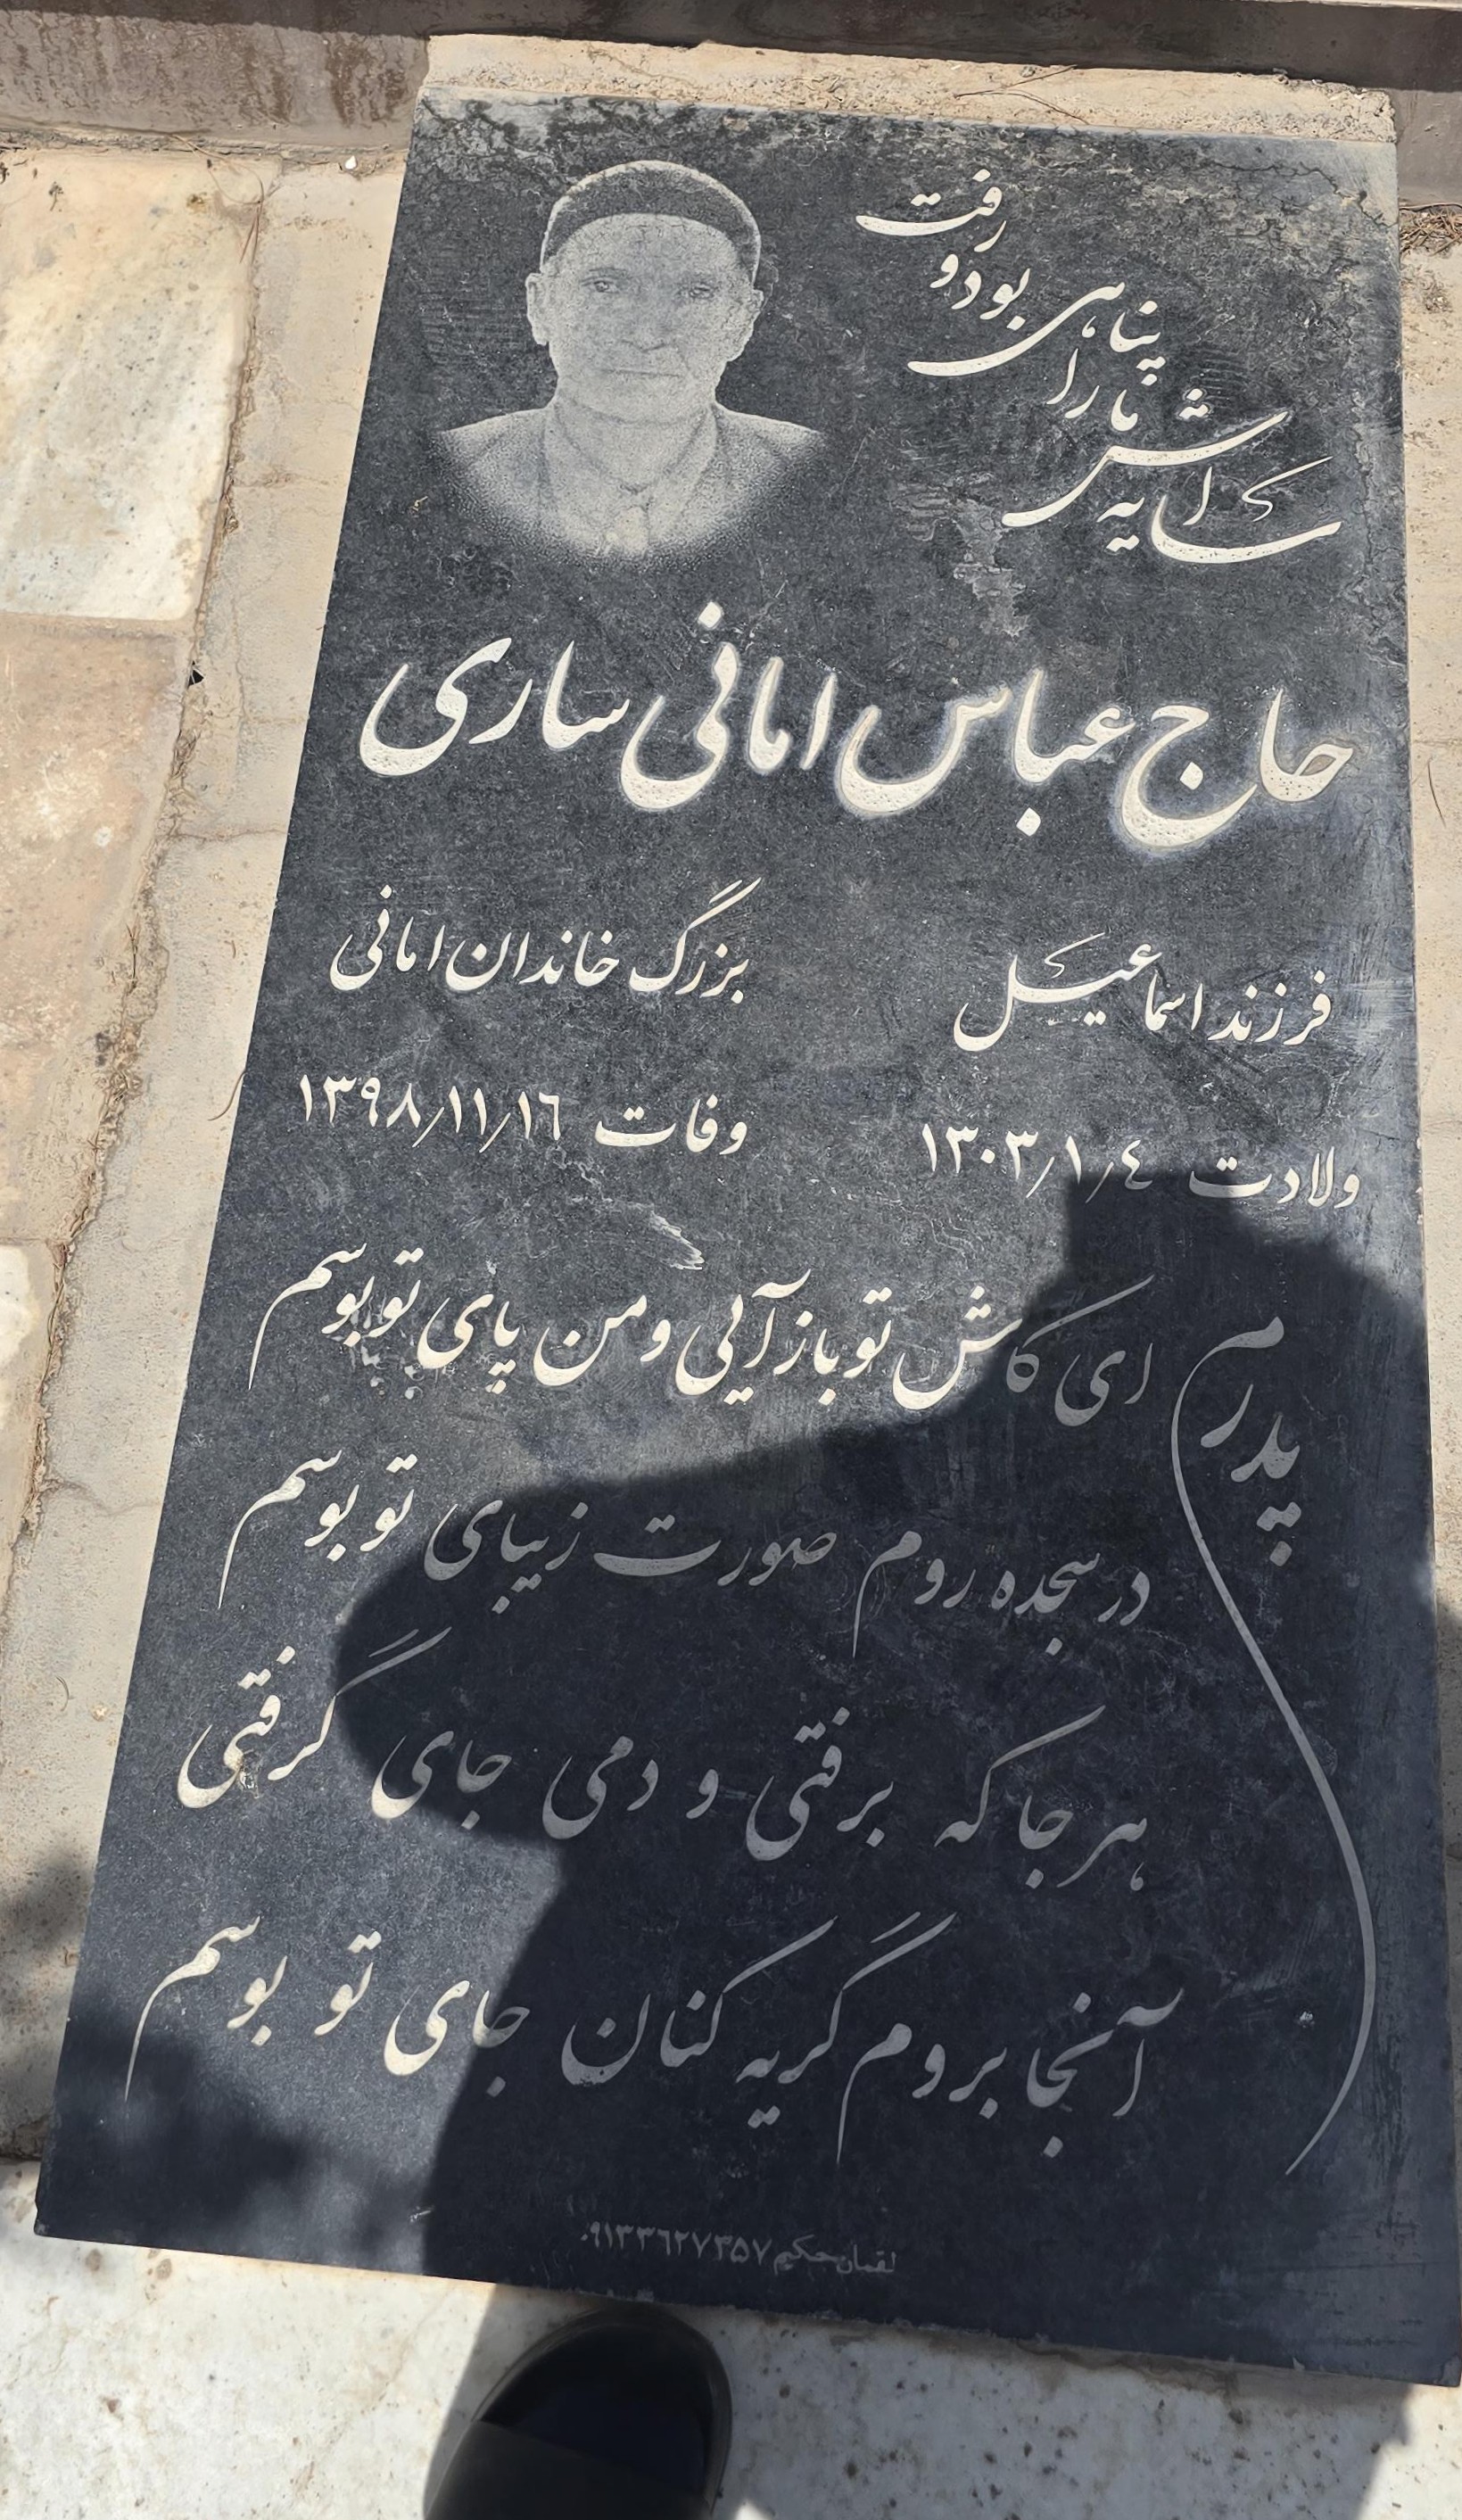 سایه‌اش ما را پناهی بود و رفت
حاج عباس امانی ساری
فرزند اسماعیل
بزرگ خاندان امانی
ولادت ۱۳۰۳/۱/٤
وفات ۱۳۹۸/۱۱/۱٦
پدرم
ای کاش تو باز آیی و من پای تو بوسم
در سجده روم صورت زیبای تو بوسم
هر جا که برفتی و دمی جای گرفتی
آنجا بروم گریه کنان جای تو بوسم
لقمان حکیم ۰۹۱۳۳٦۲۷۳۵۷